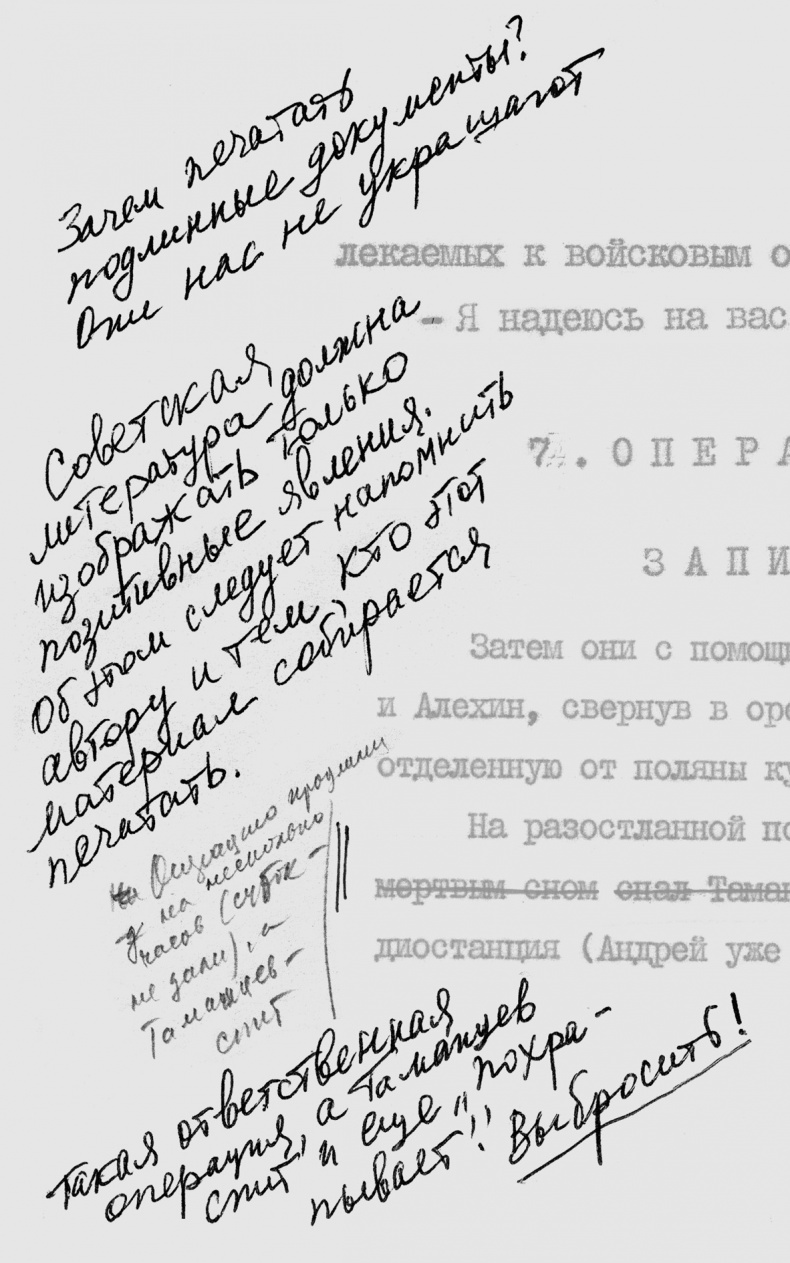 Зачем печатать
подлинные документы?
Они нас не украшают
лекаемых к войсковым о
- Я надеюсь на вас
Советская
литература должна
изображать только
позитивные явления.
Об этом следует напомнить
автору и тем, кто этот
материал собирается
печатать.
74. ОПЕРА
ЗАПИ
Затем они с помощ
и Алехин, свернув в оре
отделенную от поляны ку
На разостланной по
мертвым сном спал Таман
диостанция (Андрей уже
Операцию продлили
на несколько
часов (суток
не дали), а
Таманцев -
спит
Такая ответственная
операция, а Таманцев
спит и еще „похра-
пывает"! Выбросить!